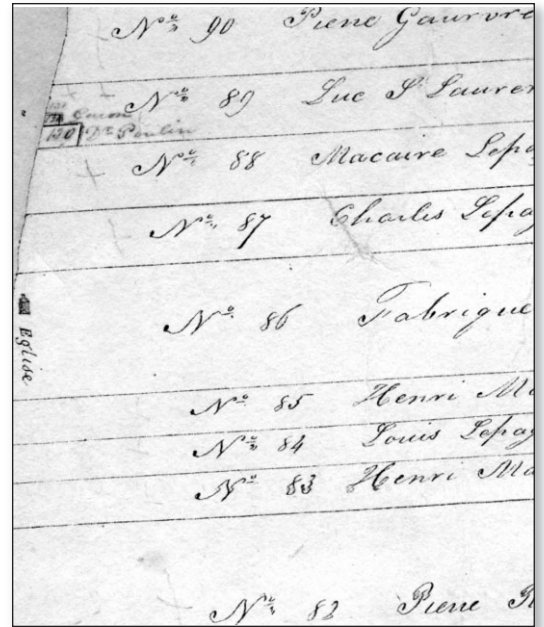 Nº 90 Piene Gauvre
Nº 89 Luc S Lauren
Couon
120 Dr Poulin
Nº 88 Macaire Lepa
Nº 87 Charles Lepa
Nº 86 Fabrique
Eglise
Nº 85 Henri Ma
Nº 84 Louis Lepag
Nº 83 Henri Ma
Nº 82 Piene